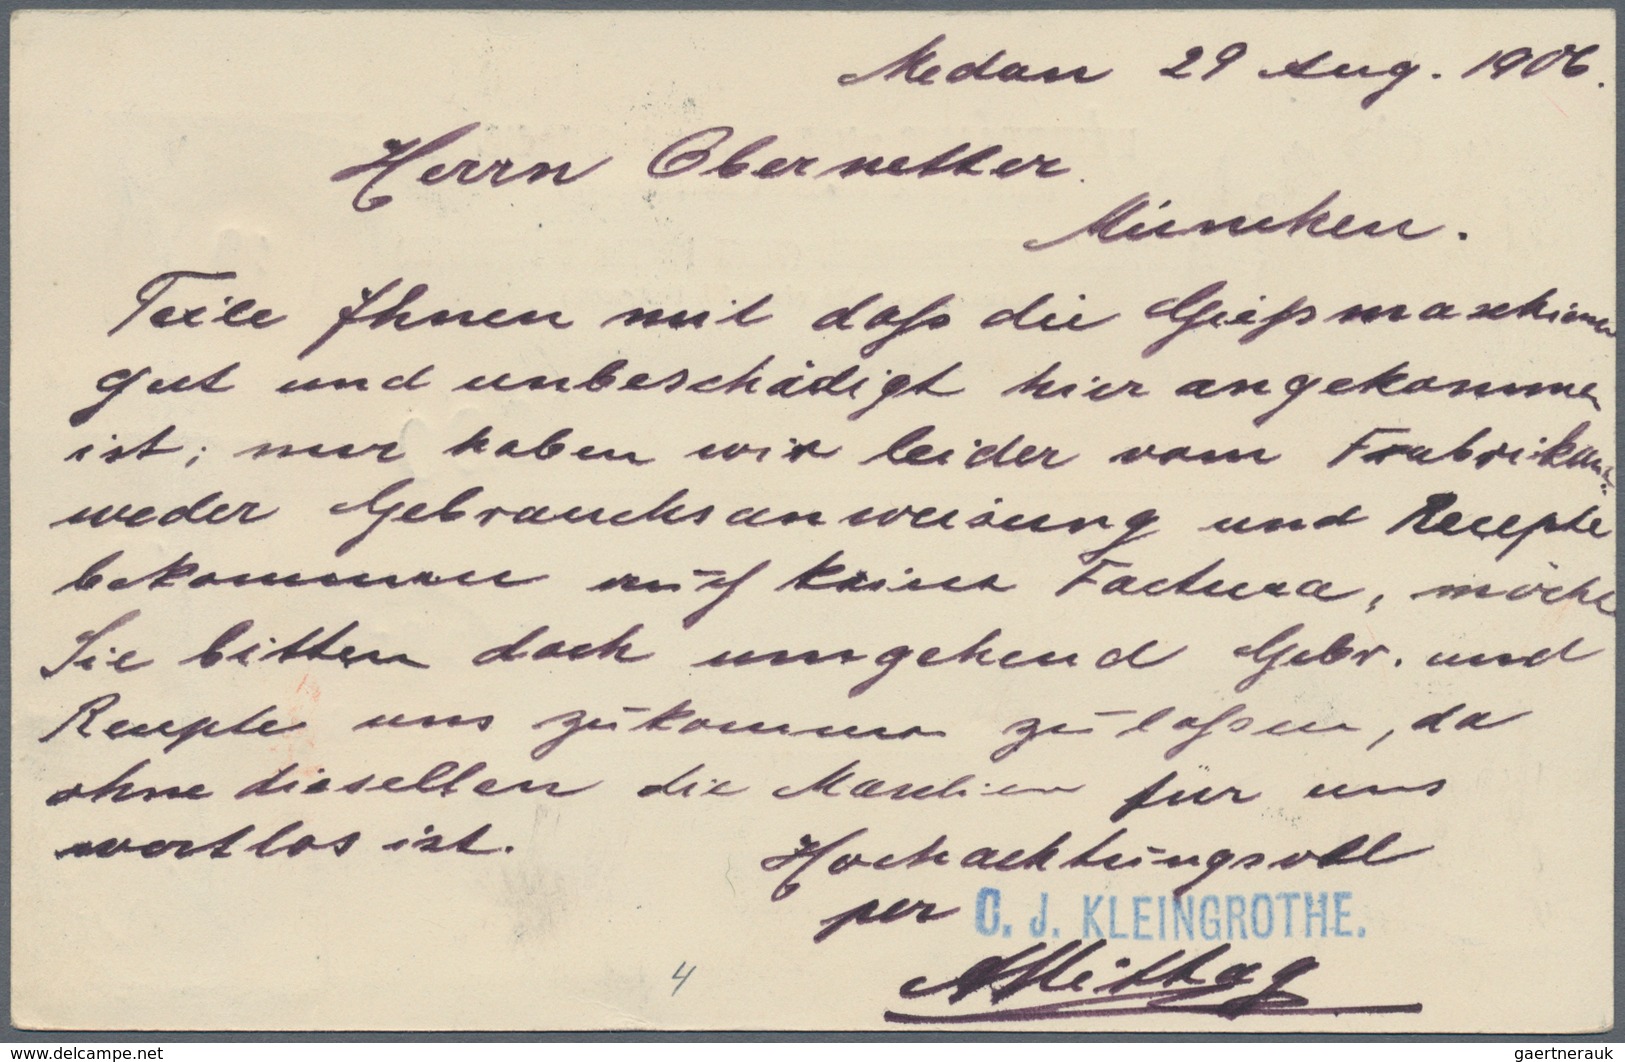 Medan 29 Aug. 1906.
Herrn Obernetter
München.
Teile Ihnen mit daß die Gießmaschienen
gut und unbeschädigt hier angekommen
ist; nur haben wir leider vom Frabrikant
weder Gebrauchsanweisung und Recepte
bekommen auch keine Factura, möchte
Sie bitten doch umgehend Gebr. und
Recepte uns zukommen zu laßen, da
ohne dieselben die Maschien für uns
wertlos ist.
Hochachtungsvoll
per C. J. KLEINGROTHE.
AMittag
4
www.delcampe.net
gaertnerauk